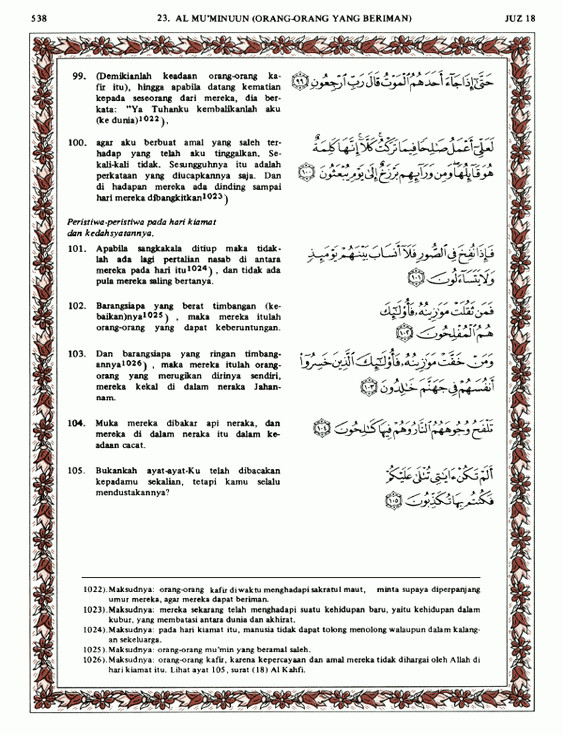 538
23. AL MU'MINUUN (ORANG-ORANG YANG BERIMAN)
JUZ 18
99. (Demikianlah keadaan orang-orang ka-
fir itu), hingga apabila datang kematian
kepada seseorang dari mereka, dia ber-
kata: "Ya Tuhanku kembalikanlah aku
(ke dunia)1022),
حَتَّىٰٓ إِذَا جَآءَ أَحَدَهُمُ ٱلْمَوْتُ قَالَ رَبِّ ٱرْجِعُونِ ٩٩
100. agar aku berbuat amal yang saleh ter-
hadap yang telah aku tinggalkan. Se-
kali-kali tidak. Sesungguhnya itu adalah
perkataan yang diucapkannya saja. Dan
di hadapan mereka ada dinding sampai
hari mereka dibangkitkan1023)
لَعَلِّىٓ أَعْمَلُ صَٰلِحًا فِيمَا تَرَكْتُ ۚ كَلَّآ ۚ إِنَّهَا كَلِمَةٌ
هُوَ قَآئِلُهَا ۖ وَمِن وَرَآئِهِم بَرْزَخٌ إِلَىٰ يَوْمِ يُبْعَثُونَ ١٠٠
Peristiwa-peristiwa pada hari kiamat
dan kedahsyatannya.
101. Apabila sangkakala ditiup maka tidak-
lah ada lagi pertalian nasab di antara
mereka pada hari itu1024), dan tidak ada
pula mereka saling bertanya.
فَإِذَا نُفِخَ فِى ٱلصُّورِ فَلَآ أَنسَابَ بَيْنَهُمْ يَوْمَئِذٍ
وَلَا يَتَسَآءَلُونَ ١٠١
102. Barangsiapa yang berat timbangan (ke-
baikan)nya1025) , maka mereka itulah
orang-orang yang dapat keberuntungan.
فَمَن ثَقُلَتْ مَوَٰزِينُهُۥ فَأُو۟لَٰٓئِكَ
هُمُ ٱلْمُفْلِحُونَ ١٠٢
103. Dan barangsiapa yang ringan timbang-
annya1026) , maka mereka itulah orang-
orang yang merugikan dirinya sendiri,
mereka kekal di dalam neraka Jahan-
nam.
وَمَنْ خَفَّتْ مَوَٰزِينُهُۥ فَأُو۟لَٰٓئِكَ ٱلَّذِينَ خَسِرُوٓا۟
أَنفُسَهُمْ فِى جَهَنَّمَ خَٰلِدُونَ ١٠٣
104. Muka mereka dibakar api neraka, dan
mereka di dalam neraka itu dalam ke-
adaan cacat.
تَلْفَحُ وُجُوهَهُمُ ٱلنَّارُ وَهُمْ فِيهَا كَٰلِحُونَ ١٠٤
105. Bukankah ayat-ayat-Ku telah dibacakan
kepadamu sekalian, tetapi kamu selalu
mendustakannya?
أَلَمْ تَكُنْ ءَايَٰتِى تُتْلَىٰ عَلَيْكُمْ
فَكُنتُم بِهَا تُكَذِّبُونَ ١٠٥
1022). Maksudnya: orang-orang kafir di waktu menghadapi sakratul maut, minta supaya diperpanjang
umur mereka, agar mereka dapat beriman.
1023). Maksudnya: mereka sekarang telah menghadapi suatu kehidupan baru, yaitu kehidupan dalam
kubur, yang membatasi antara dunia dan akhirat.
1024). Maksudnya: pada hari kiamat itu, manusia tidak dapat tolong menolong walaupun dalam kalang-
an sekeluarga.
1025). Maksudnya: orang-orang mu'min yang beramal saleh.
1026). Maksudnya: orang-orang kafir, karena kepercayaan dan amal mereka tidak dihargai oleh Allah di
hari kiamat itu. Lihat ayat 105, surat (18) Al Kahfi.